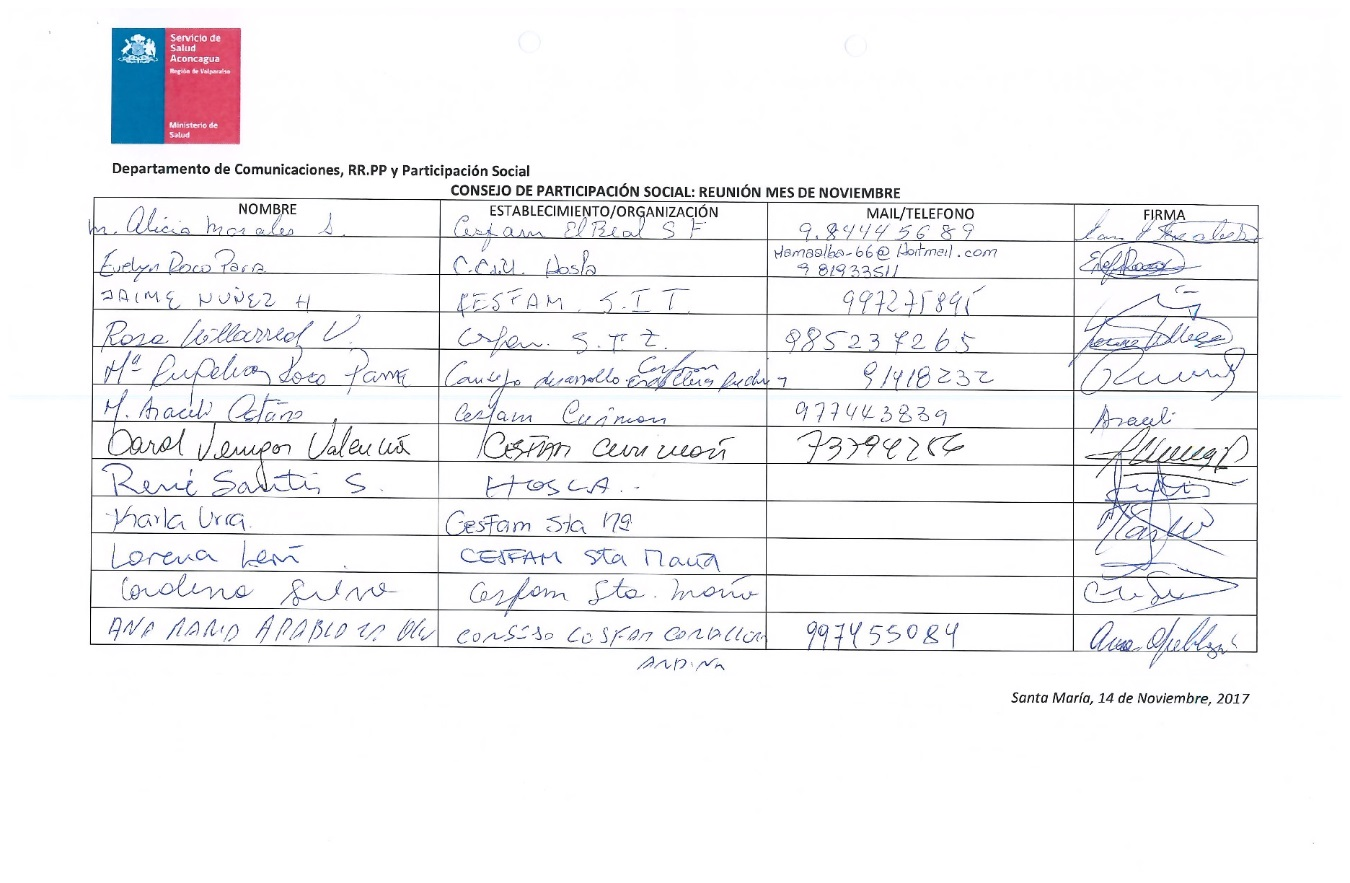 Servicio de
Salud
Aconcagua
Región de Valparaíso
Ministerio de
Salud
Departamento de Comunicaciones, RR.PP y Participación Social
CONSEJO DE PARTICIPACIÓN SOCIAL: REUNIÓN MES DE NOVIEMBRE
NOMBRE ESTABLECIMIENTO/ORGANIZACIÓN MAIL/TELEFONO FIRMA
M. Alicia Morales S. Cesfam El Real S F 9.84445689
Evelyn Roco Parra C.C.U. Hosla Hamaalba-66@hotmail.com
9 81933511
JAIME NUÑEZ H CESFAM S.I.T. 997275895
Rosa Villarreal V. Cesfam. 985237265
Mª Roco Parra Consejo desarrollo Cesfam 91418232
M. Araceli Cesfam Curimon 977443839 Araceli
Carol Valencia CESFAM Curimón 73794256
René Santis S. HOSLA.
Karla Urra. Cesfam Sta Mª
Lorena CESFAM Sta María
Carolina Silva Cesfam Sta. María
ANA MARIA APABLAZA CONSEJO CESFAM CORDILLERA 997455084
ANDINA
Santa María, 14 de Noviembre, 2017